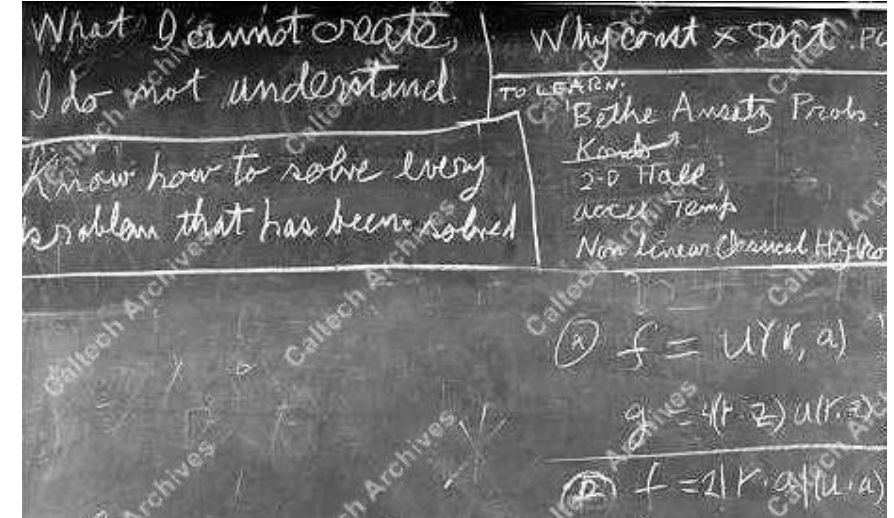 What I cannot create,
I do not understand.
Know how to solve every
problem that has been solved
Why const × sort . Po
TO LEARN:
Bethe Ansatz Probs.
Kondo
2-D Hall
accel. Temp
Non Linear Classical Hydro
f = U(r, a)
g = 4(r·z) u(r·z)
f = 2|r·a|(u·a)
Caltech Archives